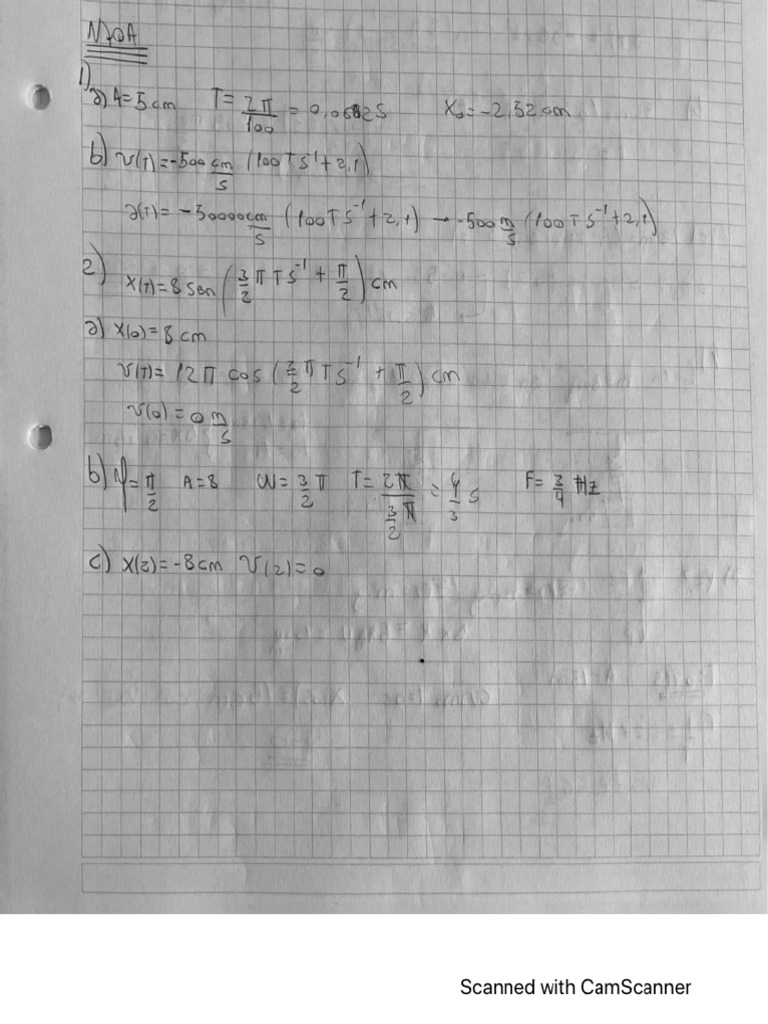 N7OA
1)
a) A=5cm T=2π/100 = 0,0682s X₀=-2,52cm
b) v(T)=-500 cm/s (100T s⁻¹+2,1)
a(T)=-50000 cm/s (100T s⁻¹+2,1) → -500 m/s (100T s⁻¹+2,1)
2) X(T)=8 sen(3/2 π T s⁻¹ + π/2) cm
a) X(0)=8cm
v(T)= 12π cos(3/2 π T s⁻¹ + π/2) cm
v(0)=0 m/s
b) φ=π/2 A=8 W=3/2 π T=2π/(3/2 π) = 4/3 s F=3/4 Hz
c) X(2)=-8cm V(2)=0
Scanned with CamScanner